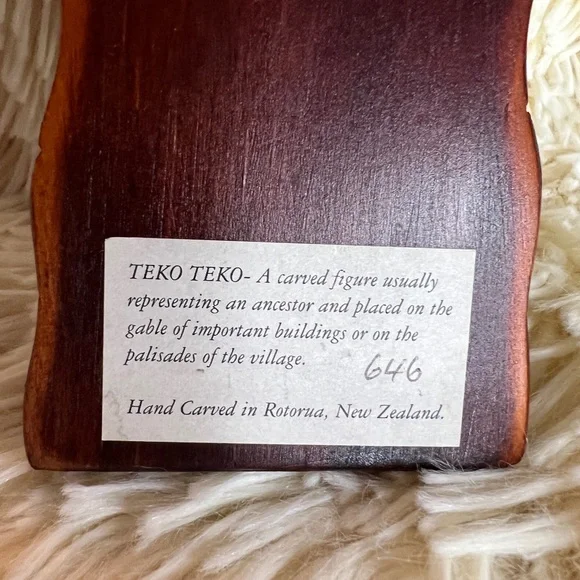 TEKO TEKO- A carved figure usually
representing an ancestor and placed on the
gable of important buildings or on the
palisades of the village.
646
Hand Carved in Rotorua, New Zealand.